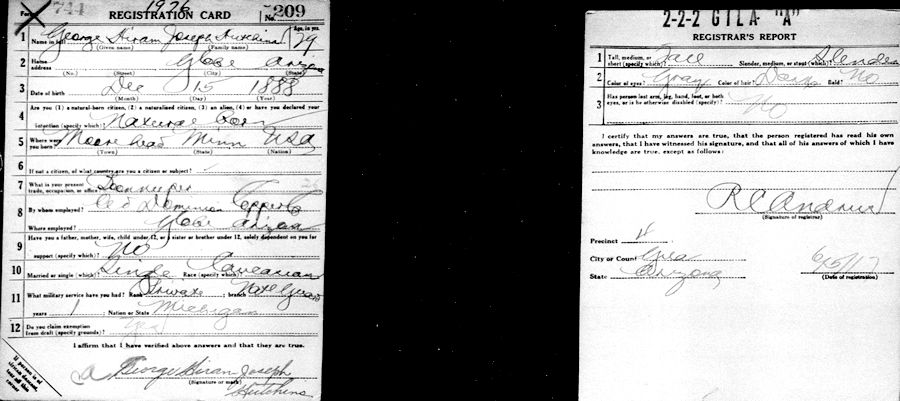 Form 1 744 1926 REGISTRATION CARD No. 209
1 Name in full George Hiram Joseph Hutchins Age, in yrs. 29
(Given name) (Family name)
2 Home address Globe Arizona
(No.) (Street) (City) (State)
3 Date of birth Dec 15 1888
(Month) (Day) (Year)
4 Are you (1) a natural-born citizen, (2) a naturalized citizen, (3) an alien, (4) or have you declared your
intention (specify which)? Natural Born
5 Where were you born? Moorehead Minn USA
(Town) (State) (Nation)
6 If not a citizen, of what country are you a citizen or subject?
7 What is your present trade, occupation, or office?
8 By whom employed? Old Dominion Copper Co
Where employed? Globe Arizona
9 Have you a father, mother, wife, child under 12, or a sister or brother under 12, solely dependent on you for
support (specify which)? No
10 Married or single (which)? Single Race (specify which)? Caucasian
11 What military service have you had? Rank Private ; branch Natl Guard
years 1 ; Nation or State Michigan
12 Do you claim exemption from draft (specify grounds)?
I affirm that I have verified above answers and that they are true.
George Hiram Joseph
(Signature or mark)
Hutchins
If person is of African descent, tear off this corner
2-2-2 GILA "A"
REGISTRAR'S REPORT
1 Tall, medium, or short (specify which)? Tall Slender, medium, or stout (which)? Slender
2 Color of eyes? Gray Color of hair? Dark Bald? No
3 Has person lost arm, leg, hand, foot, or both
eyes, or is he otherwise disabled (specify)? No
I certify that my answers are true, that the person registered has read his own
answers, that I have witnessed his signature, and that all of his answers of which I have
knowledge are true, except as follows:
R C
(Signature of registrar)
Precinct 4
City or County Gila
State Arizona
6/5/17
(Date of registration)